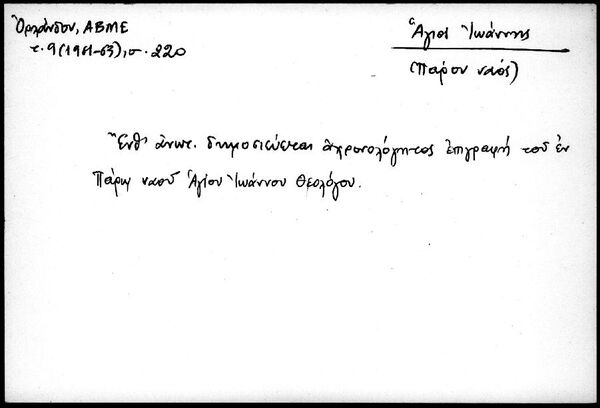 Ὀρλάνδου, ΑΒΜΕ
τ. 9 (1961-63), σ. 220
Ἅγιος Ἰωάννης
(Πάρου ναός)
Ἔνθ' ἀνωτ. δημοσιεύεται ἀχρονολόγητος ἐπιγραφή τοῦ ἐν
Πάρῳ ναοῦ Ἁγίου Ἰωάννου Θεολόγου.